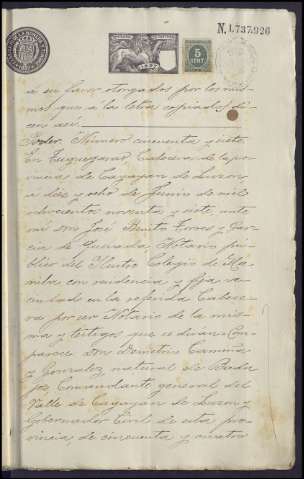 N. 1.737.926
1897
5
CENT
á su favor otorgados por los mis-
mos que á la letra copiados di-
cen así.
Poder Número cuarenta y siete.
En Tuguegarao Cabecera de la pro-
vincia de Cagayan de Luzon,
á diez y ocho de Junio de mil
ochocientos noventa y siete, ante
mi don José Benito y Gar-
cia de Notario pú-
blico del Ilustre Colegio de Ma-
nila con residencia y fija ve-
cindad en la referida Cabece-
ra por ser Notario de la mis-
ma y testigos que se dirán: Com-
parece: Don Demetrio Camiña
y Gonzalez natural de Bada
joz Comandante general del
Valle de Cagayan de Luzon y
Gobernador Civil de esta pro-
vincia, de cincuenta y cuatro